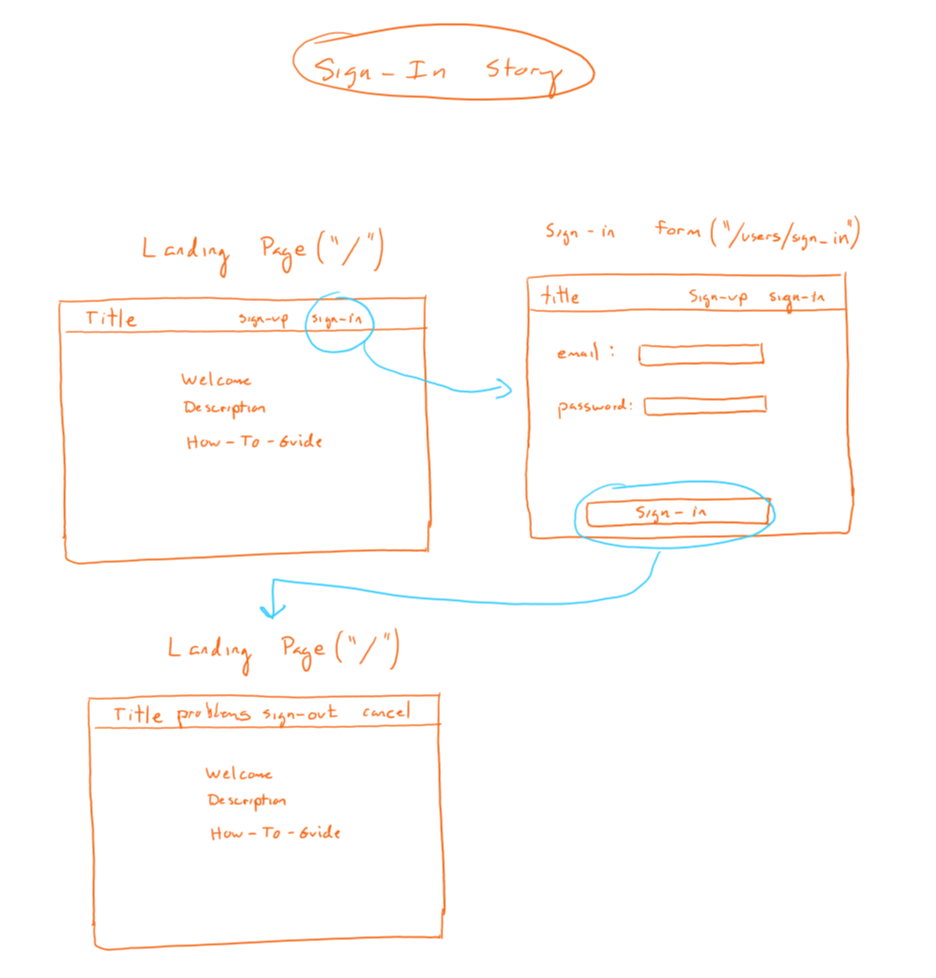 Sign-In Story
Landing Page ("/")
Title sign-up sign-in
Welcome
Description
How-To-Guide
Sign-in form ("/users/sign_in")
title Sign-up sign-in
email:
password:
Sign-in
Landing Page ("/")
Title problems sign-out cancel
Welcome
Description
How-To-Guide